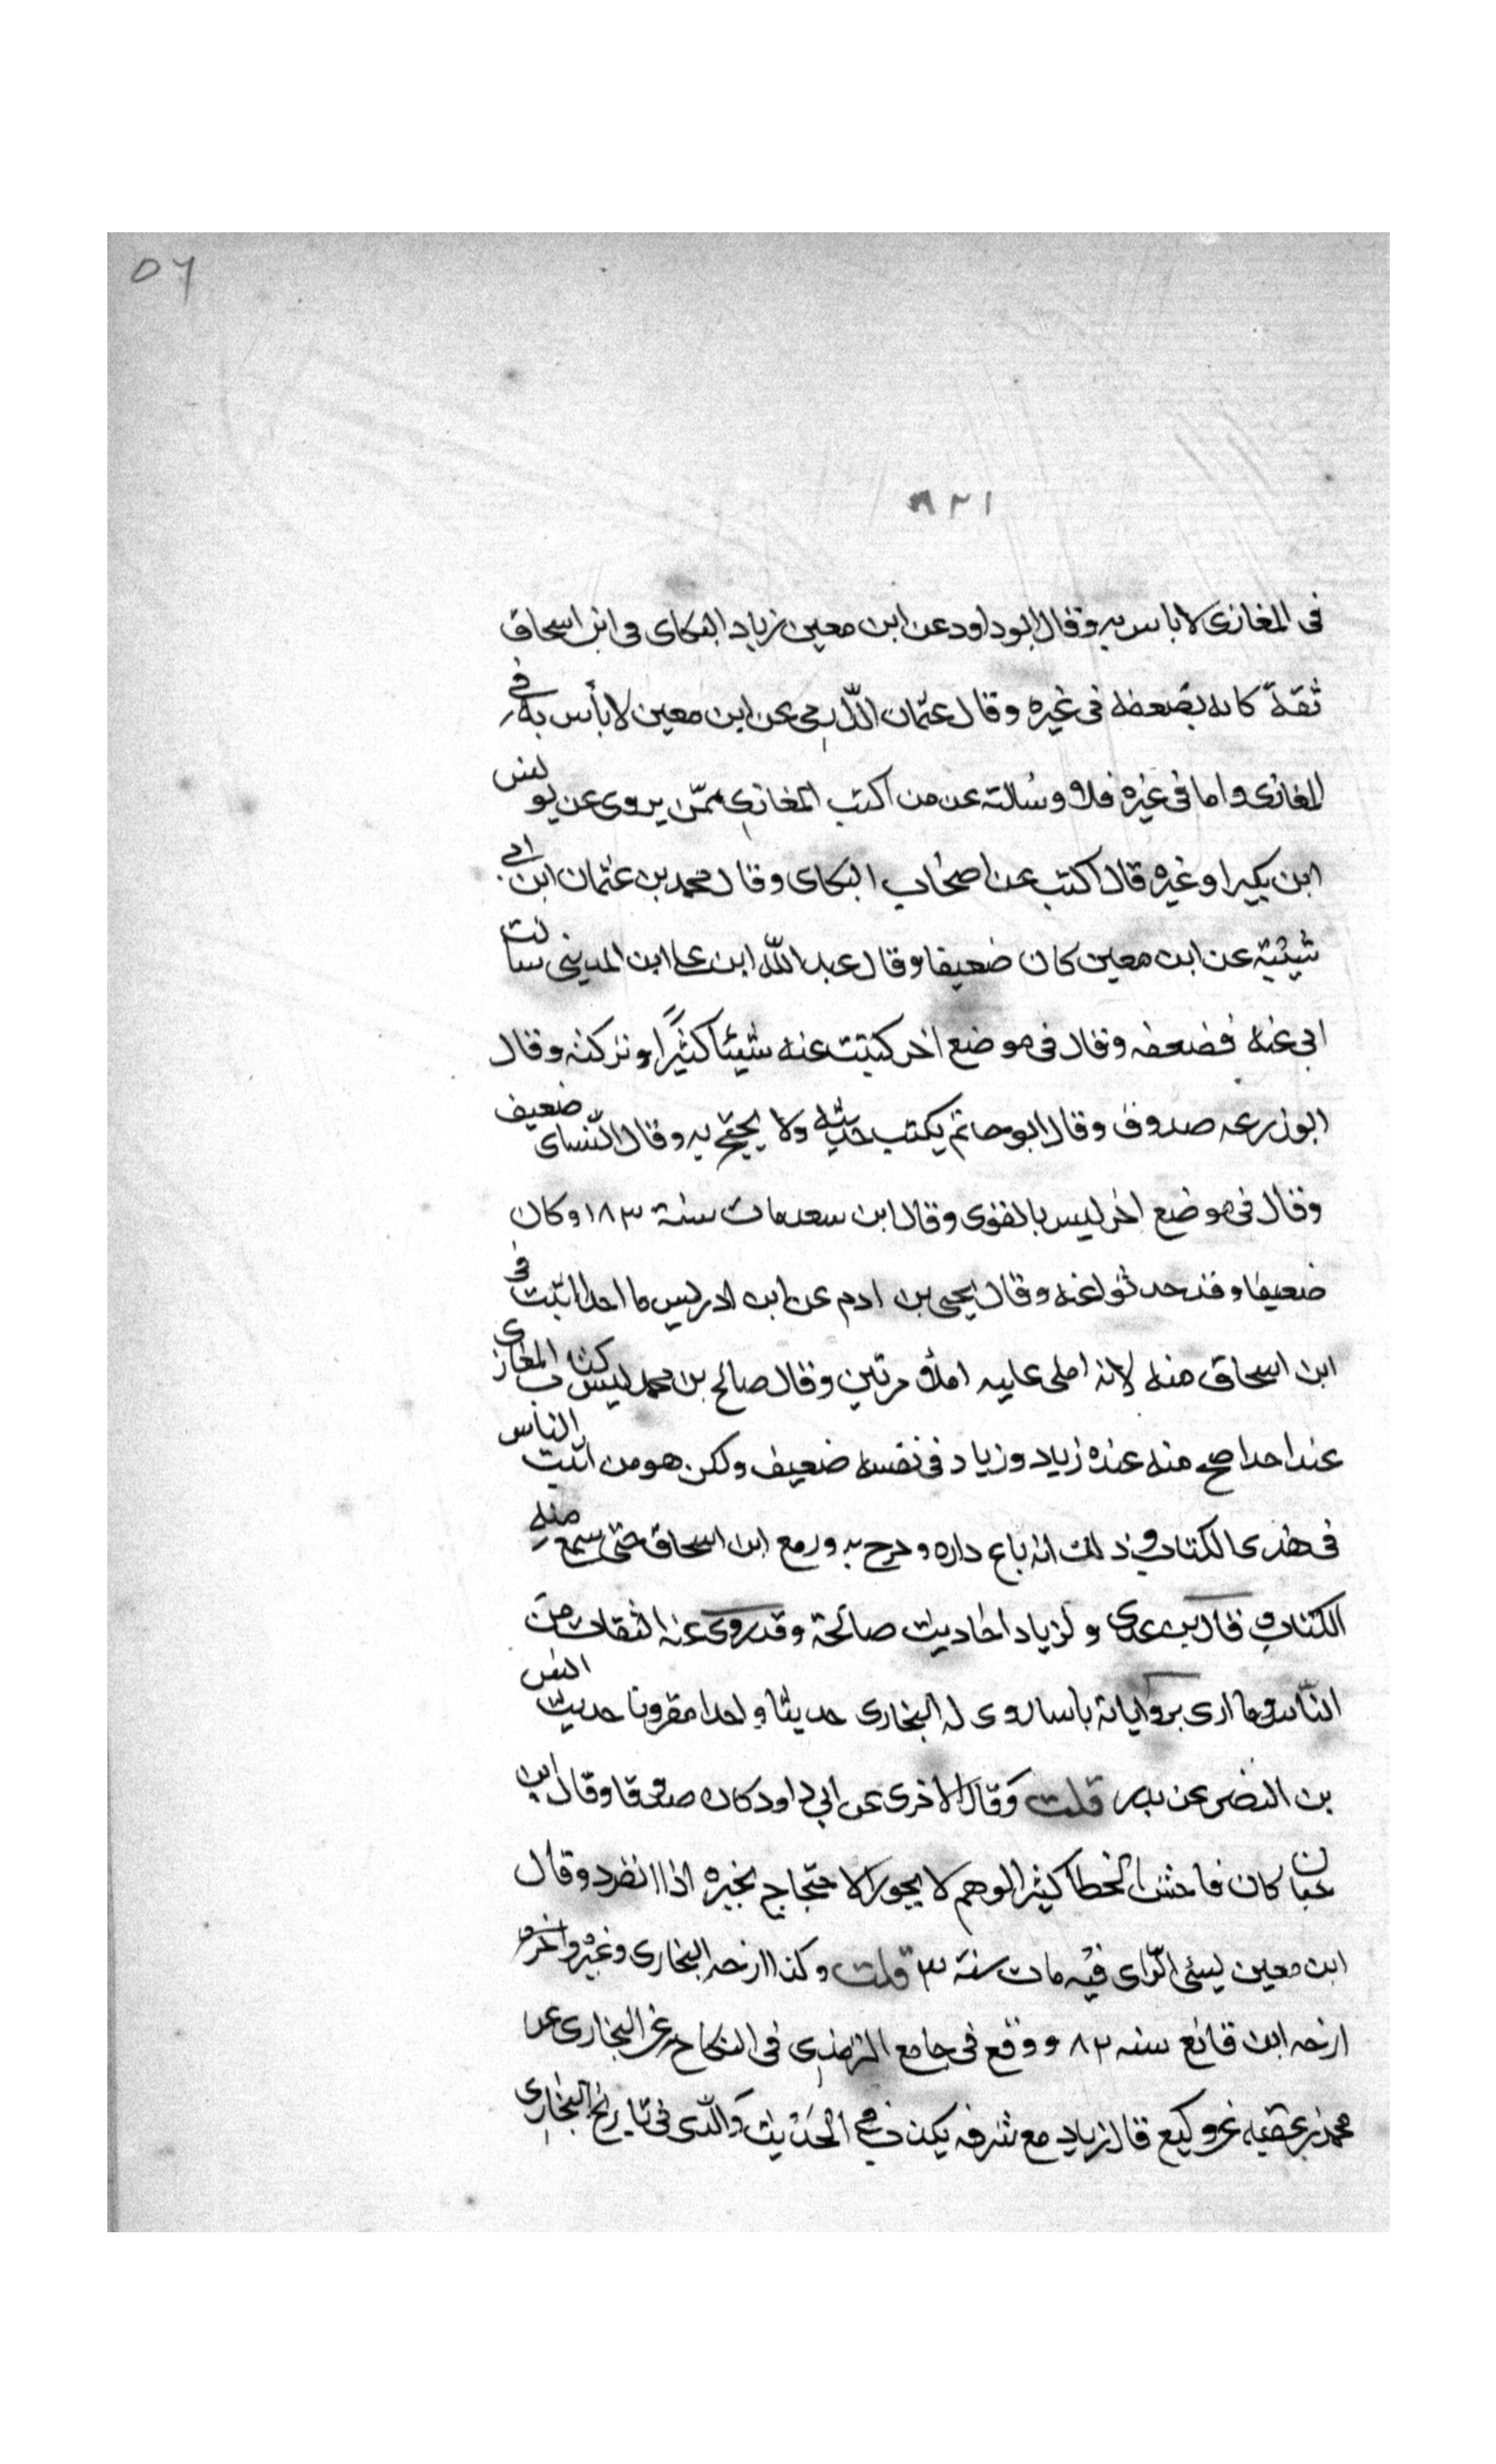 ٥٦
٩٢١
فى المغازى لا باس به وقال ابو داود عن ابن معين زياد البكاى فى ابن اسحاق
ثقة كانه يضعفه فى غيره وقال عثمان الدارمي عن ابن معين لا بأس به في
المغازى واما فى غيره فلا وسالته عن من اكتب المغازى ممن يروى عن يونس
ابن بكير او غيره قال اكتب عن اصحاب البكاى وقال محمد بن عثمان ابن ابي
شيبة عن ابن معين كان ضعيفا وقال عبد الله ابن على ابن المدينى سالت
ابى عنه فضعفه وقال فى موضع اخر كتبت عنه شيئا كثيرًا وتركته وقال
ابو زرعه صدوق وقال ابو حاتم يكتب حديثه ولا يحتج به وقال النسائ ضعيف
وقال فى موضع اخر ليس بالقوى وقال ابن سعد مات سنة ١٨٣ وكان
ضعيفا وقد حدثوا عنه وقال يحيى بن ادم عن ابن ادريس ما احد اثبت فى
ابن اسحاق منه لانه املى عليه املاء مرتين وقال صالح بن محمد ليس كتاب المغازى
عند احد اصح منه عنده زياد وزياد فى نفسه ضعيف ولكن هو من اثبت الناس
فى هذى الكتاب وذلك انه باع داره وخرج يدور مع ابن اسحاق حتى سمع منه
الكتاب وقال بن عدى ولزياد احاديث صالحة وقد روى عنه الثقات من
الناس وما ارى برواياته باسا روى له البخارى حديثا واحدا مقرونا حديث انس
بن النضر عن بدر قلت وقال الاخرى عن ابي داود كان صدوقا وقال ابن
حبان كان فاحش الخطا كثير الوهم لا يجوز الاحتجاج بخبره اذا انفرد وقال
ابن معين ليسئ الراى فيه مات سنة ٣ قلت وكذا ارخه البخارى وغيره واخره
ارخه ابن قانع سنه ٨٣ ووقع فى جامع الترمذى فى النكاح عن البخارى عن
محمد بن عقبه عن وكيع قال زياد مع شرفه يكذب فى الحديث والذى فى تاريخ البخارى